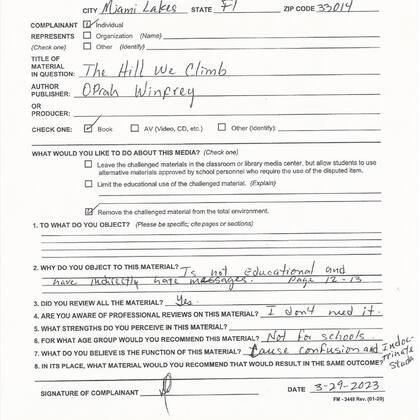 CITY Miami Lakes STATE Fl ZIP CODE 33014
COMPLAINANT Individual
REPRESENTS Organization (Name)
(Check one) Other (Identify)
TITLE OF
MATERIAL
IN QUESTION: The Hill We Climb
AUTHOR
PUBLISHER: Oprah Winfrey
OR
PRODUCER:
CHECK ONE: Book AV (Video, CD, etc.) Other (Identify):
WHAT WOULD YOU LIKE TO DO ABOUT THIS MEDIA? (Check one)
Leave the challenged materials in the classroom or library media center, but allow students to use
alternative materials approved by school personnel who require the use of the disputed item.
Limit the educational use of the challenged material. (Explain)
Remove the challenged material from the total environment.
1. TO WHAT DO YOU OBJECT? (Please be specific; cite pages or sections)
2. WHY DO YOU OBJECT TO THIS MATERIAL? Is not educational and
have indirectly hate messages. Page 12-13
3. DID YOU REVIEW ALL THE MATERIAL? Yes.
4. ARE YOU AWARE OF PROFESSIONAL REVIEWS ON THIS MATERIAL? I don't need it.
5. WHAT STRENGTHS DO YOU PERCEIVE IN THIS MATERIAL?
6. FOR WHAT AGE GROUP WOULD YOU RECOMMEND THIS MATERIAL? Not for schools.
7. WHAT DO YOU BELIEVE IS THE FUNCTION OF THIS MATERIAL? Cause confusion and Indoc
trinate
8. IN ITS PLACE, WHAT MATERIAL WOULD YOU RECOMMEND THAT WOULD RESULT IN THE SAME OUTCOME?
SIGNATURE OF COMPLAINANT DATE 3-29-2023
FM - 3448 Rev. (01-20)